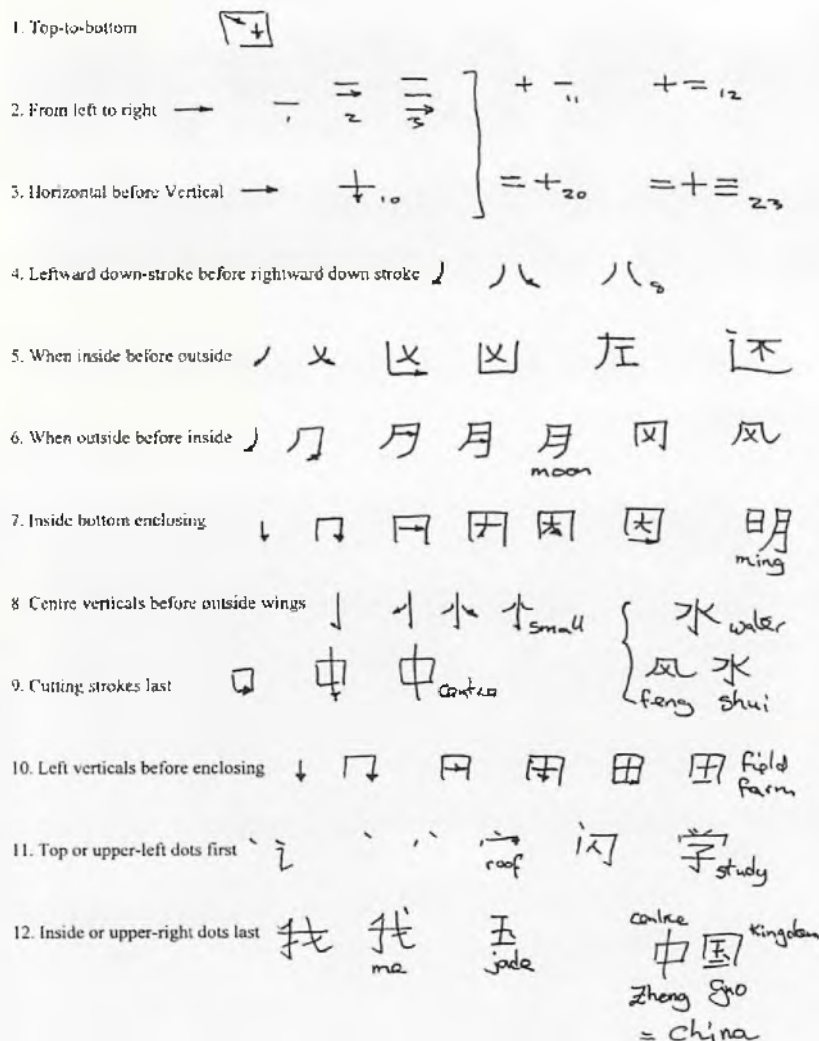 1. Top-to-bottom
2. From left to right 一 1 二 2 三 3 十一 11 十二 12
3. Horizontal before Vertical 十 10 二十 20 二十三 23
4. Leftward down-stroke before rightward down stroke 八 八 8
5. When inside before outside 乂 凶 凶 左 还
6. When outside before inside 月 月 moon 冈 风
7. Inside bottom enclosing 因 明 ming
8 Centre verticals before outside wings 小 small 水 water
9. Cutting strokes last 中 中 centre 风水 feng shui
10. Left verticals before enclosing 田 田 field farm
11. Top or upper-left dots first roof 闪 学 study
12. Inside or upper-right dots last 我 me 玉 jade 中国 centre Kingdom
Zheng Guo
= China